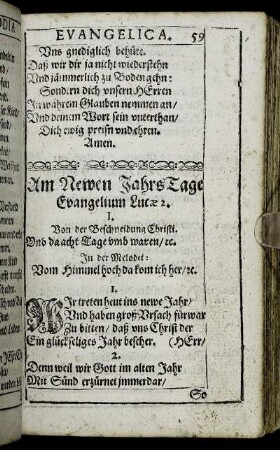 EVANGELICA. 59
Vns gnediglich behüte.
Daß wir dir ja nicht wiederstehn
Vnd jämmerlich zu Boden gehn:
Sondern dich vnsern HErren
In wahrem Glauben nennen an/
Vnd deinem Wort sein vnterthan/
Dich ewig preisn vnd ehren.
Amen.
Am Newen Jahrs Tage
Evangelium Lucæ 2.
I.
Von der Beschneidung Christi.
Vnd da acht Tage vmb waren/ ꝛc.
In der Melodei:
Vom Himmel hoch da kom ich her/ ꝛc.
1.
WIr treten heut ins newe Jahr/
Vnd haben groß Vrsach fürwar
Zu bitten/ daß vns Christ der
Ein glückseliges Jahr bescher. (HErr/
2.
Denn weil wir Gott im alten Jahr
Mit Sünd erzürnet immerdar/
So